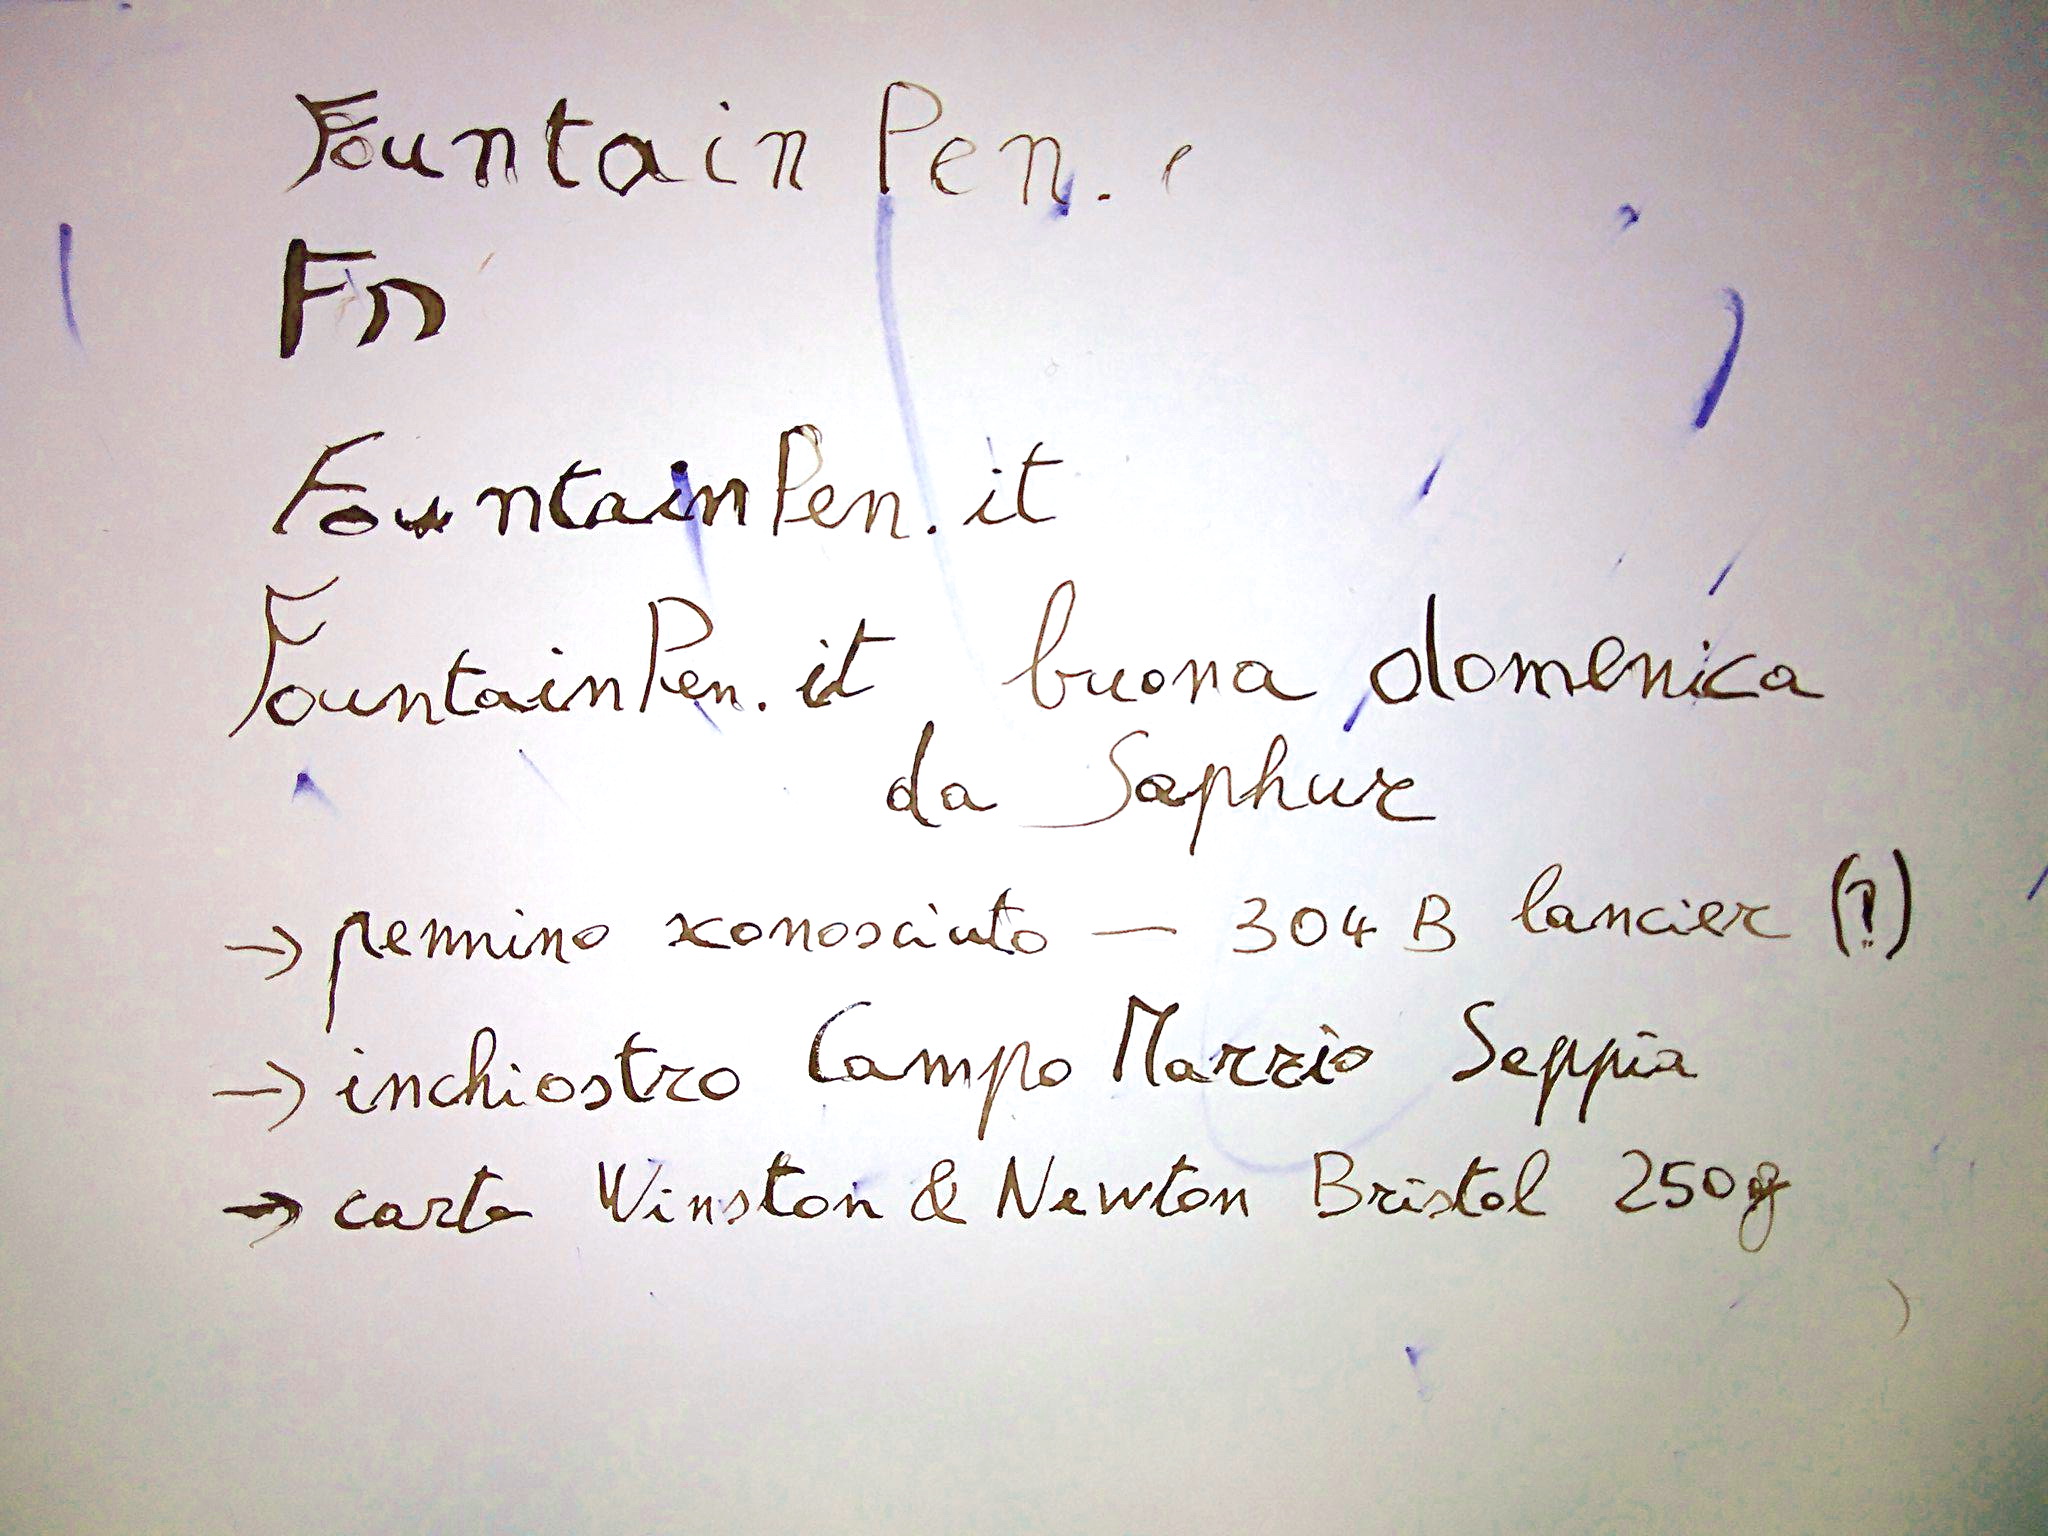 Fountain Pen.
Fn
FountainPen.it
FountainPen.it buona domenica
da Saphur
→ pennino sconosciuto — 304 B lancier (?)
→ inchiostro Campo Marzio Seppia
→ carta Winston & Newton Bristol 250g